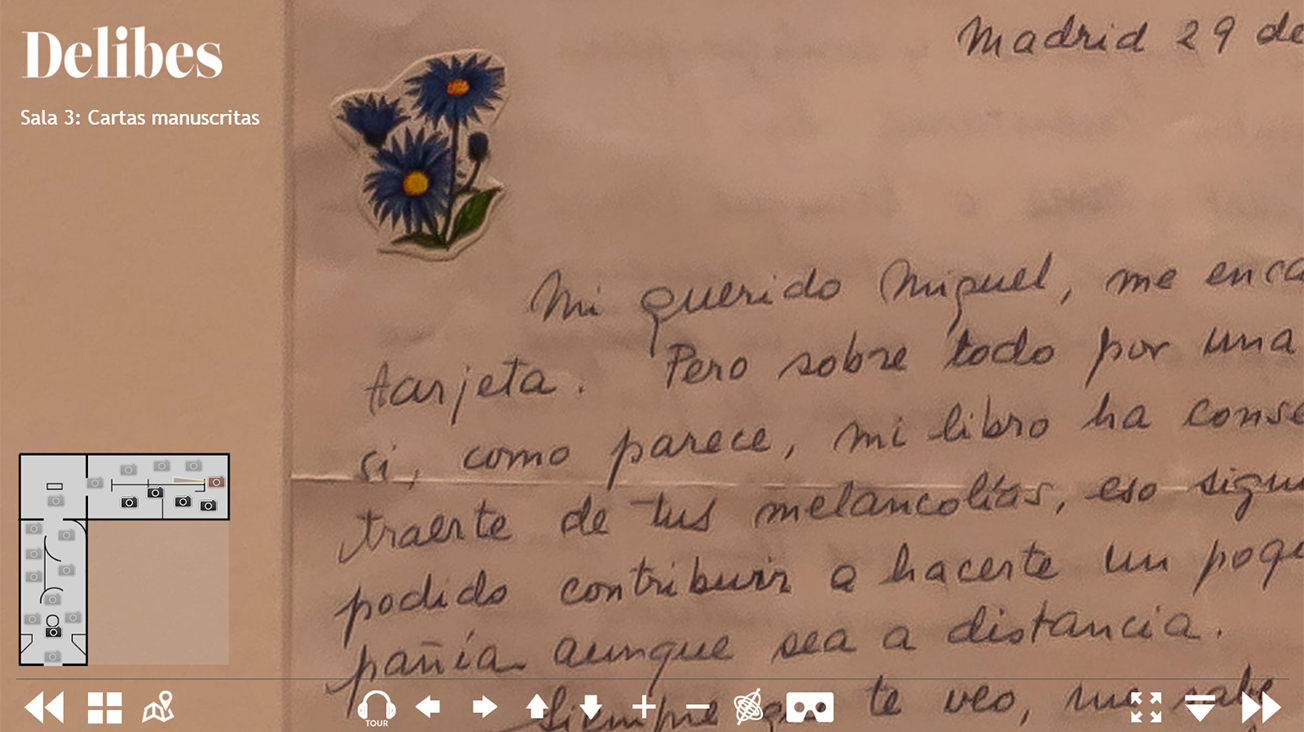 Delibes
Sala 3: Cartas manuscritas
Madrid 29 de
Mi querido Miguel, me enca
tarjeta. Pero sobre todo por una
si, como parece, mi libro ha conse
traerte de tus melancolías, eso sign
podido contribuir a hacerte un poq
pañía aunque sea a distancia.
Siempre que te veo, me sabe
TOUR